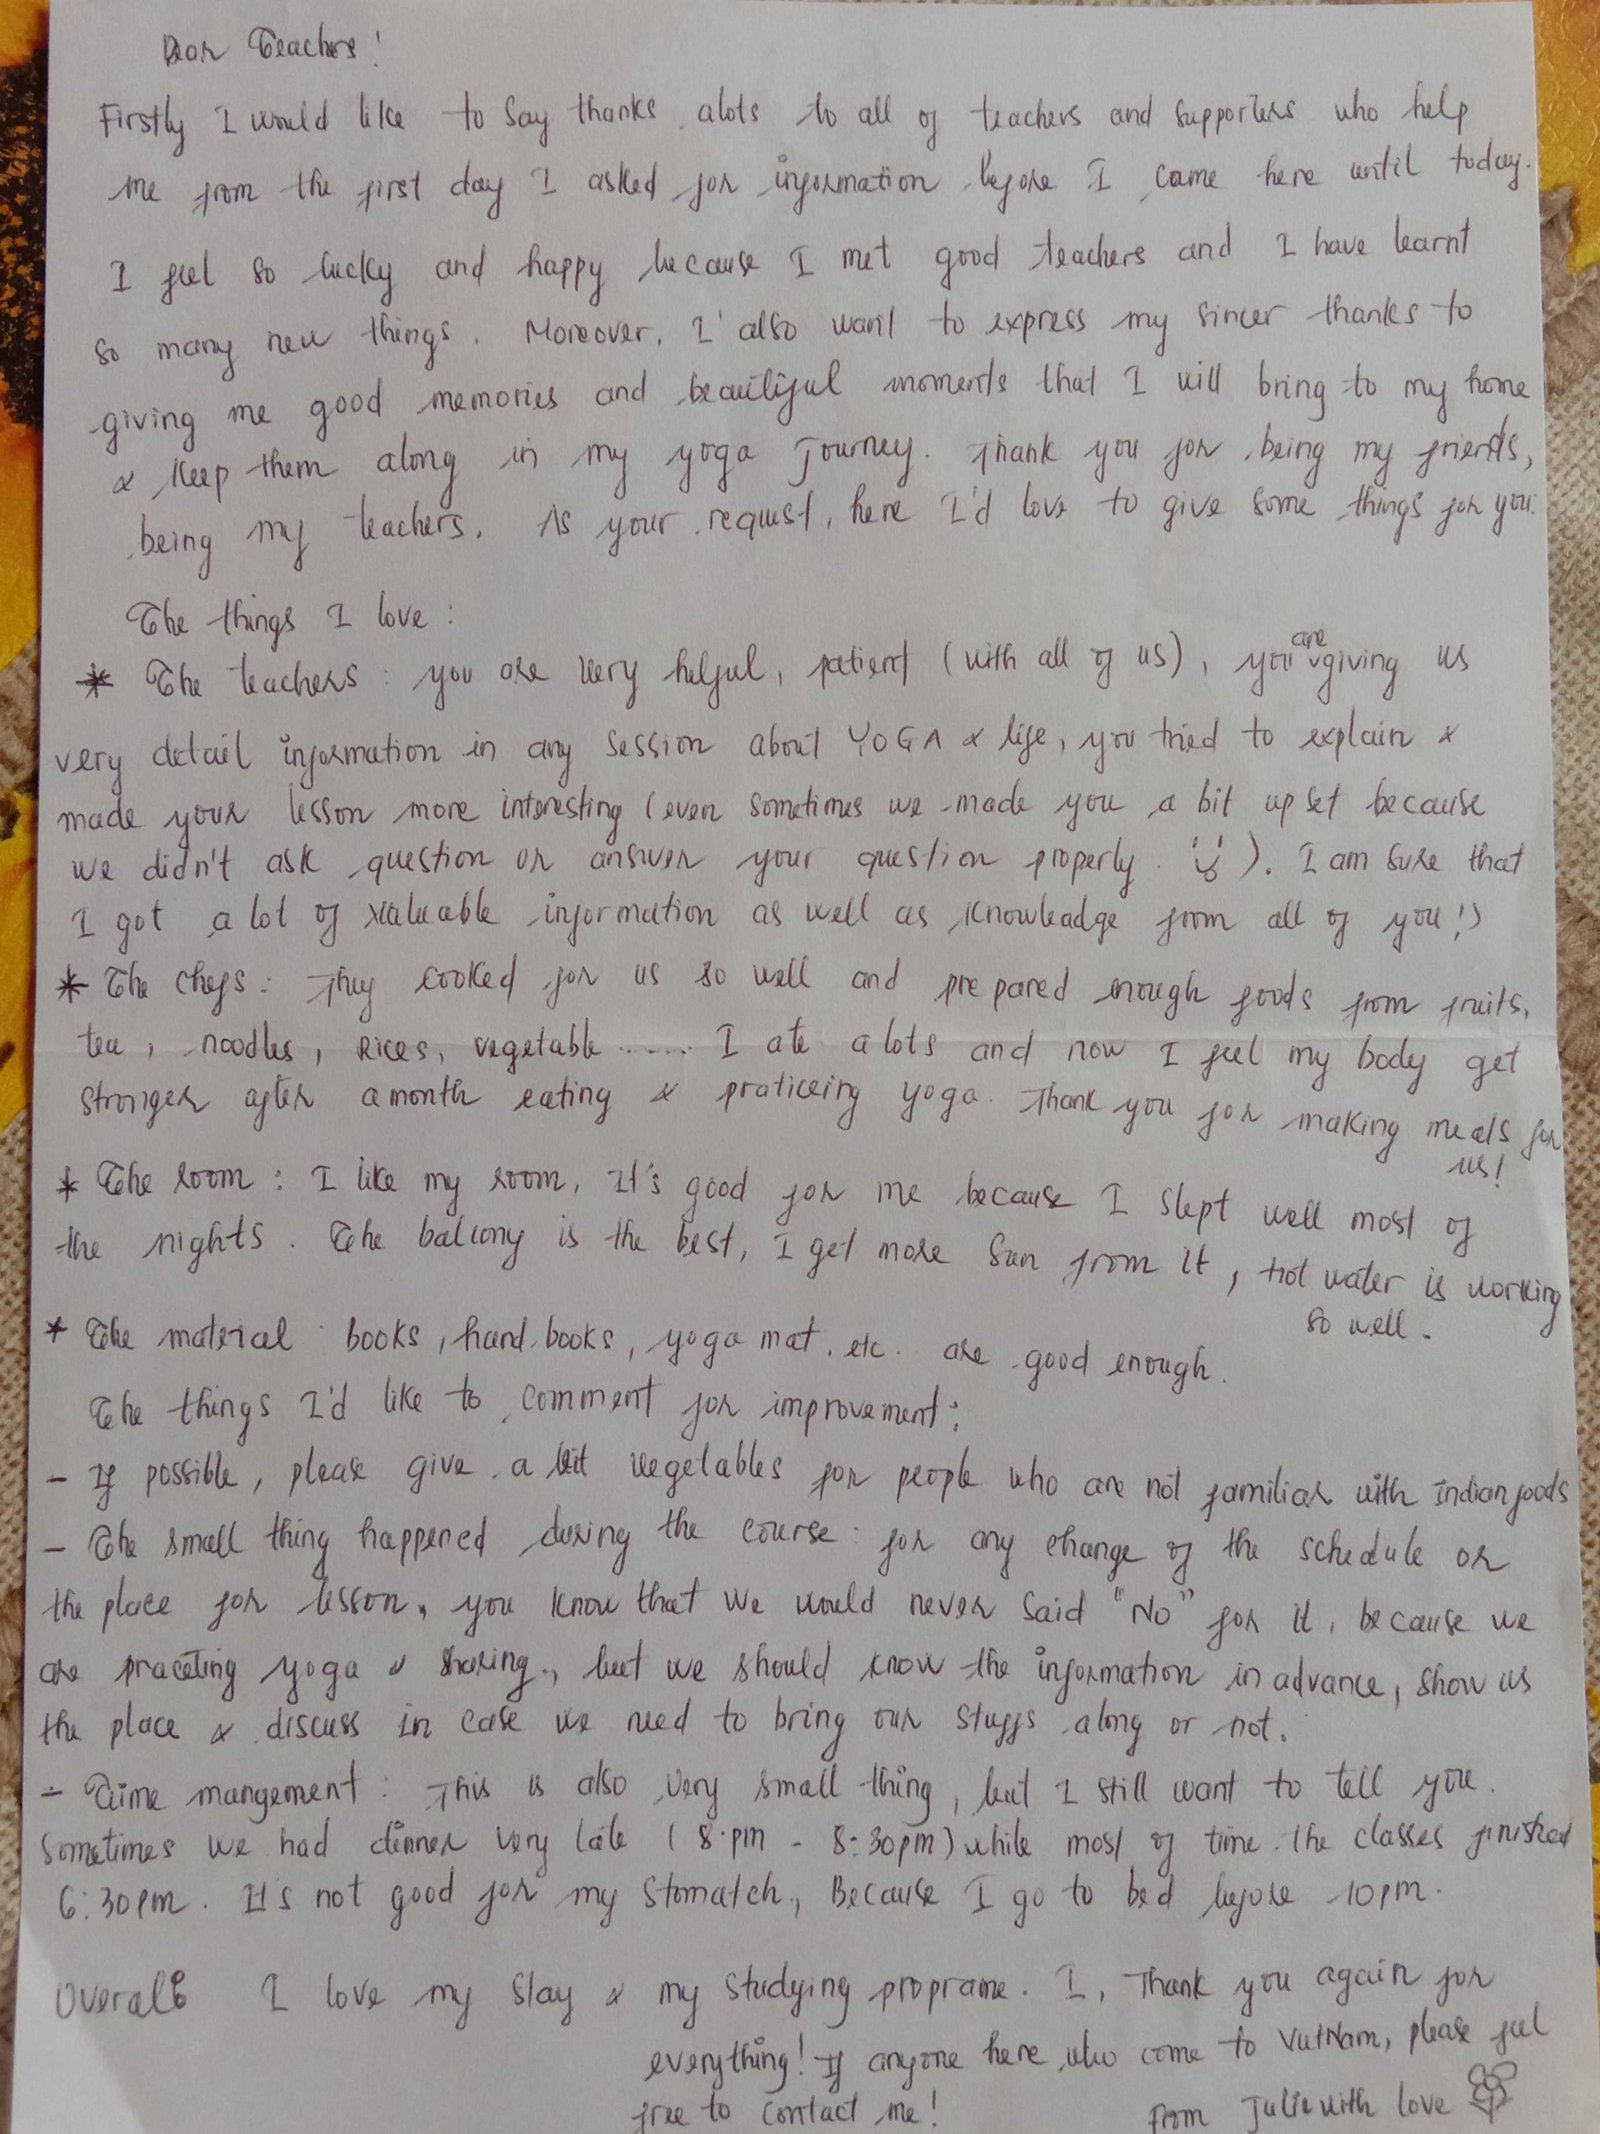 Dear Teachers!
Firstly I would like to say thanks alots to all of teachers and supporters who help
me from the first day I asked for information before I came here until today.
I feel so lucky and happy because I met good teachers and I have learnt
so many new things. Moreover, I also want to express my sincer thanks to
giving me good memories and beautiful moments that I will bring to my home
& keep them along in my yoga journey. Thank you for being my friends,
being my teachers. As your request, here I'd love to give some things for you:
The things I love:
* The teachers: you are very helful, patient (with all of us), you are giving us
very detail information in any session about YOGA & life, you tried to explain &
made your lesson more interesting (even sometimes we made you a bit upset because
we didn't ask question or answer your question properly. ). I am sure that
I got a lot of valuable information as well as knowleadge from all of you!)
* The chefs: They cooked for us so well and prepared enough foods from fruits,
tea, noodles, rices, vegetable ...... I ate alots and now I feel my body get
stronger after a month eating & praticeing yoga. Thank you for making meals for
us!
* The room: I like my room, It's good for me because I slept well most of
the nights. The balcony is the best, I get more sun from it, hot water is working
so well.
* The material: books, hand books, yoga mat, etc. are good enough.
The things I'd like to comment for improvement:
- If possible, please give a bit vegetables for people who are not familiar with Indian foods
- The small thing happened during the course: for any change of the schedule or
the place for lesson, you know that we would never said "No" for it, because we
are praceting yoga & sharing, but we should know the information in advance, show us
the place & discuss in case we need to bring our stuffs along or not.
- Time mangement: This is also very small thing, but I still want to tell you.
Sometimes we had dinner very late (8.pm - 8:30pm) while most of time the classes finished
6:30pm. It's not good for my stomatch, Because I go to bed before 10pm.
Overall: I love my stay & my studying programe. I, Thank you again for
everything! If anyone here who come to VietNam, please feel
free to contact me!
from Julie with love